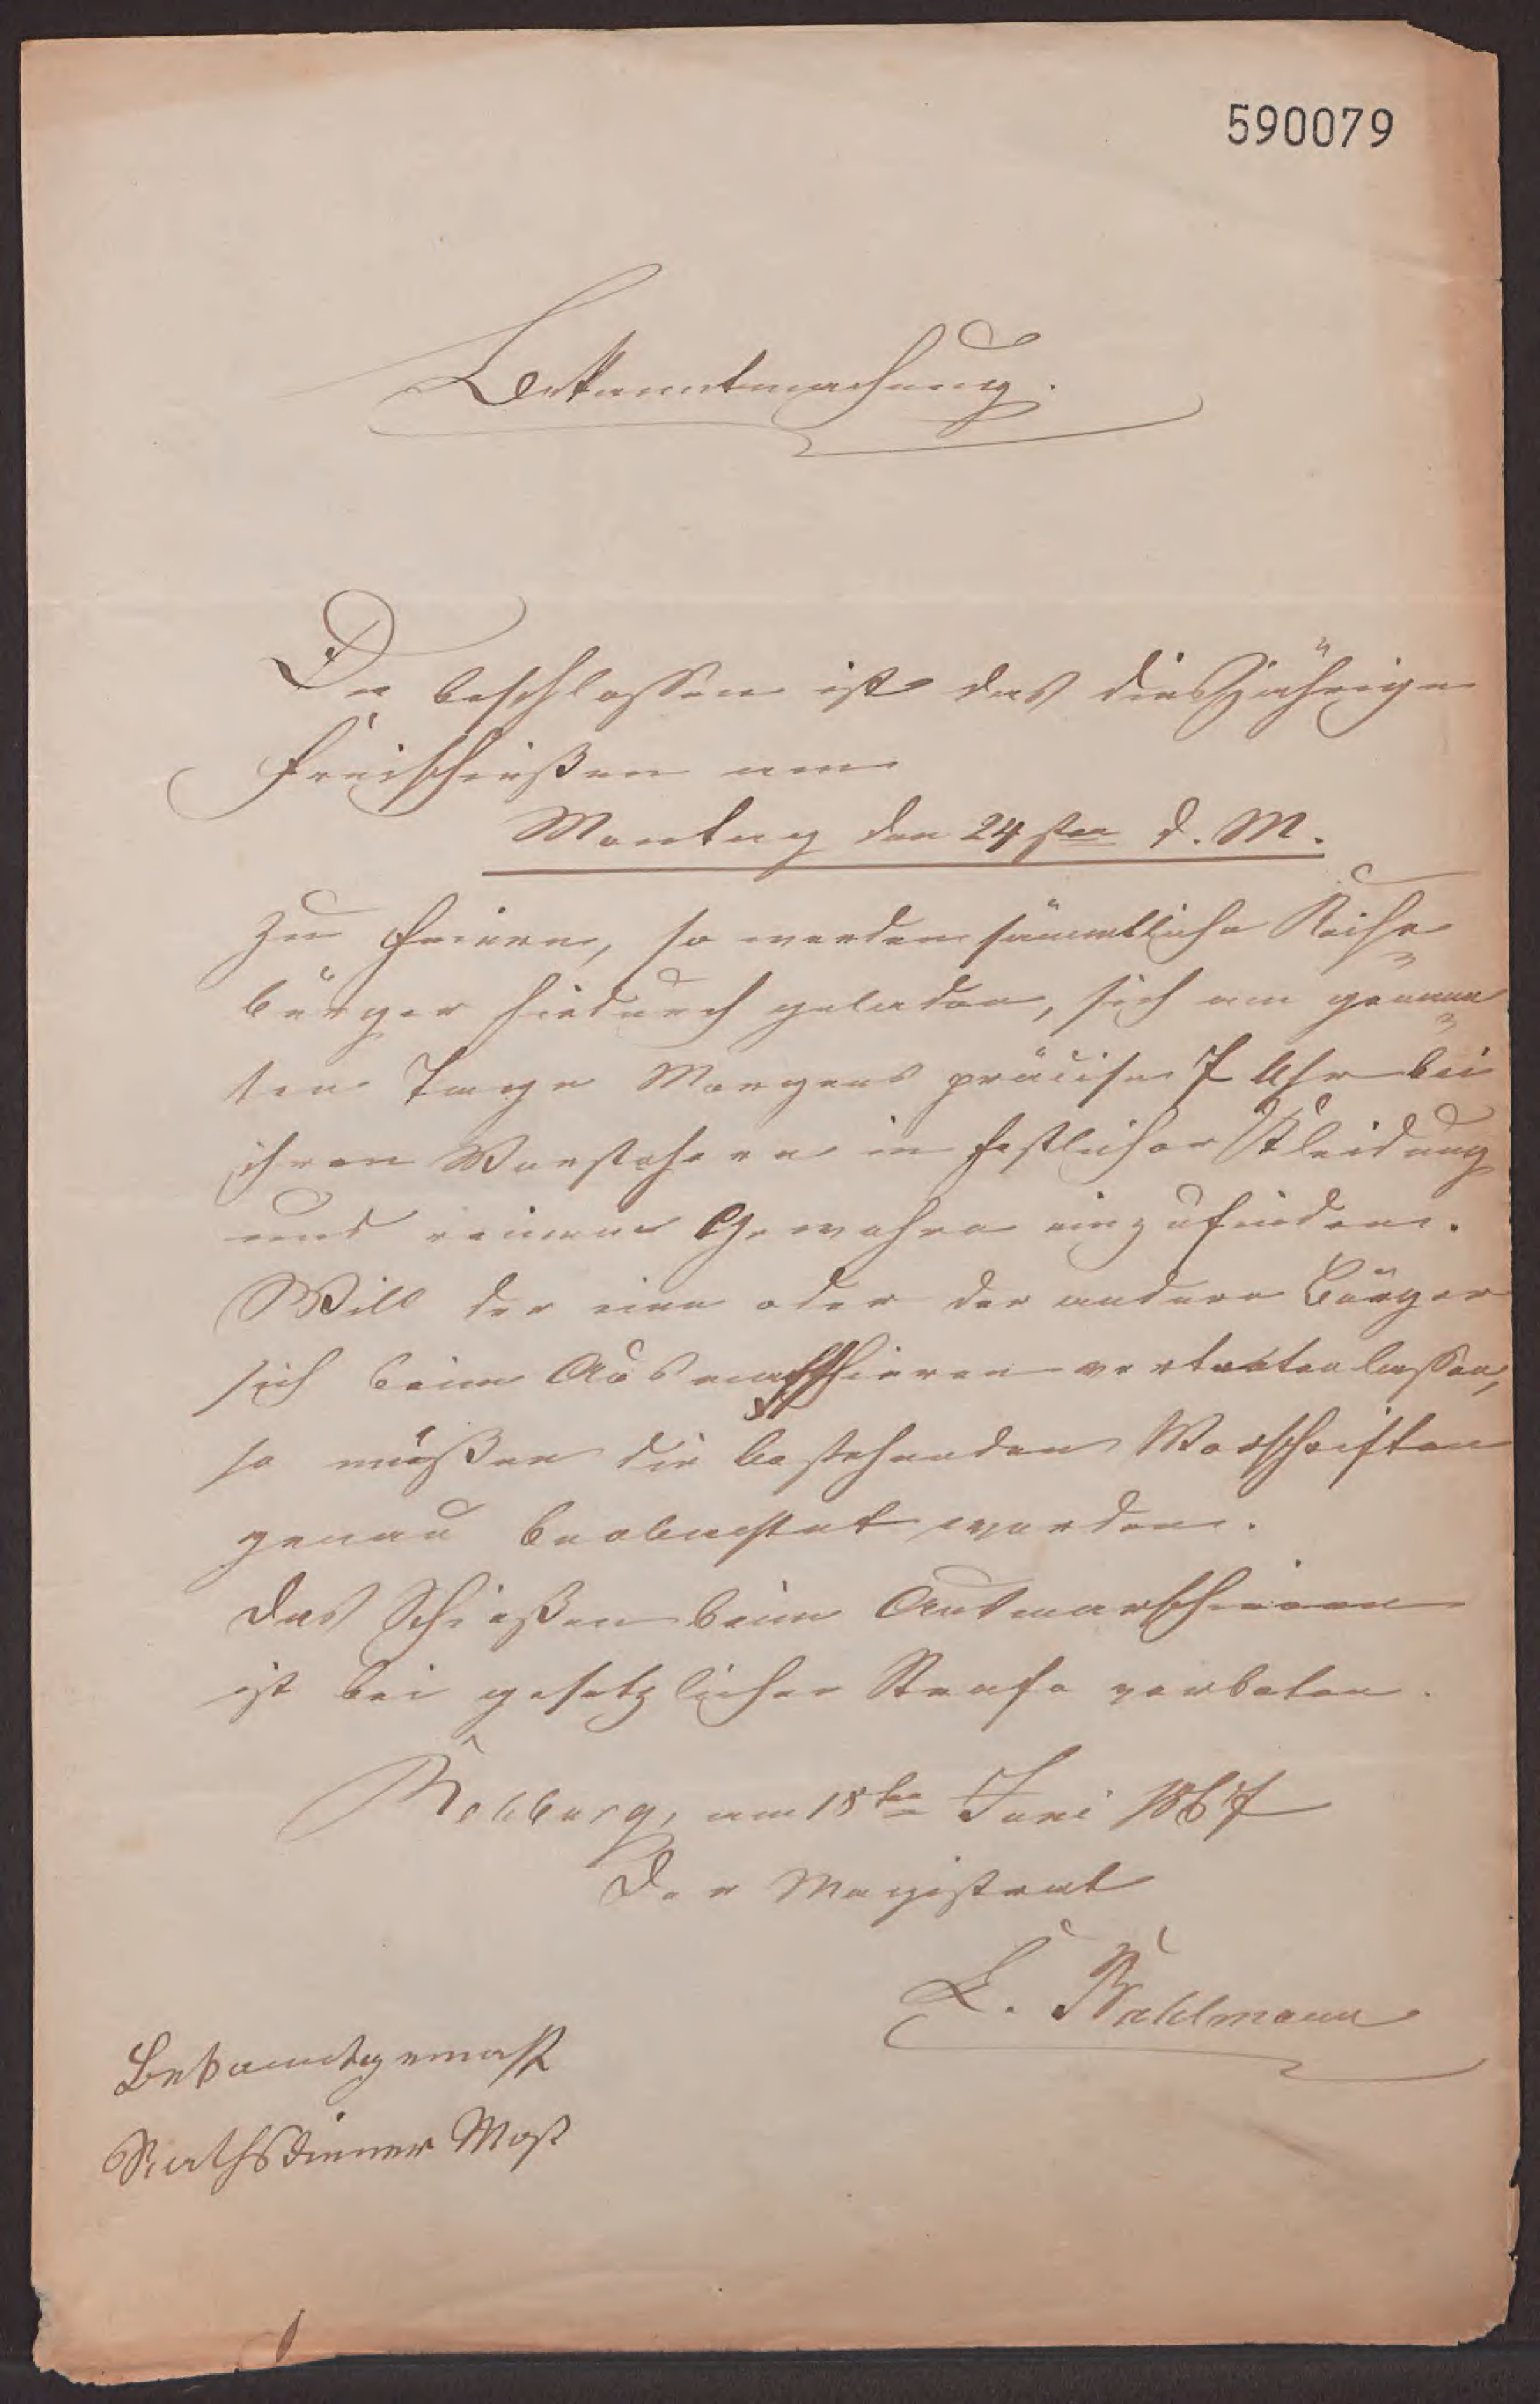 590079
Bekanntmachung.
Da beschlossen ist das diesjährige
Freischießen am
Montag den 24sten d. M.
zu feiern, so werden sämmtliche Reihe-
bürger hiedurch geladen, sich am genann-
ten Tage Morgens präcise 7 Uhr bei
ihren Vorstehern in festlicher Kleidung
und reinem Gewehre einzufinden.
Will der eine oder der andere Bürger
sich beim Ausmarschieren vertreten lassen,
so müßen die bestehenden Vorschriften
genau beobachtet werden.
Das Schießen beim Ausmarschieren
ist bei gesetzlicher Strafe verboten.
Rehburg, am 18ten Juni 1867
Der Magistrat
E. Meßlmann
Bekanntgemacht
Rathsdiener Most